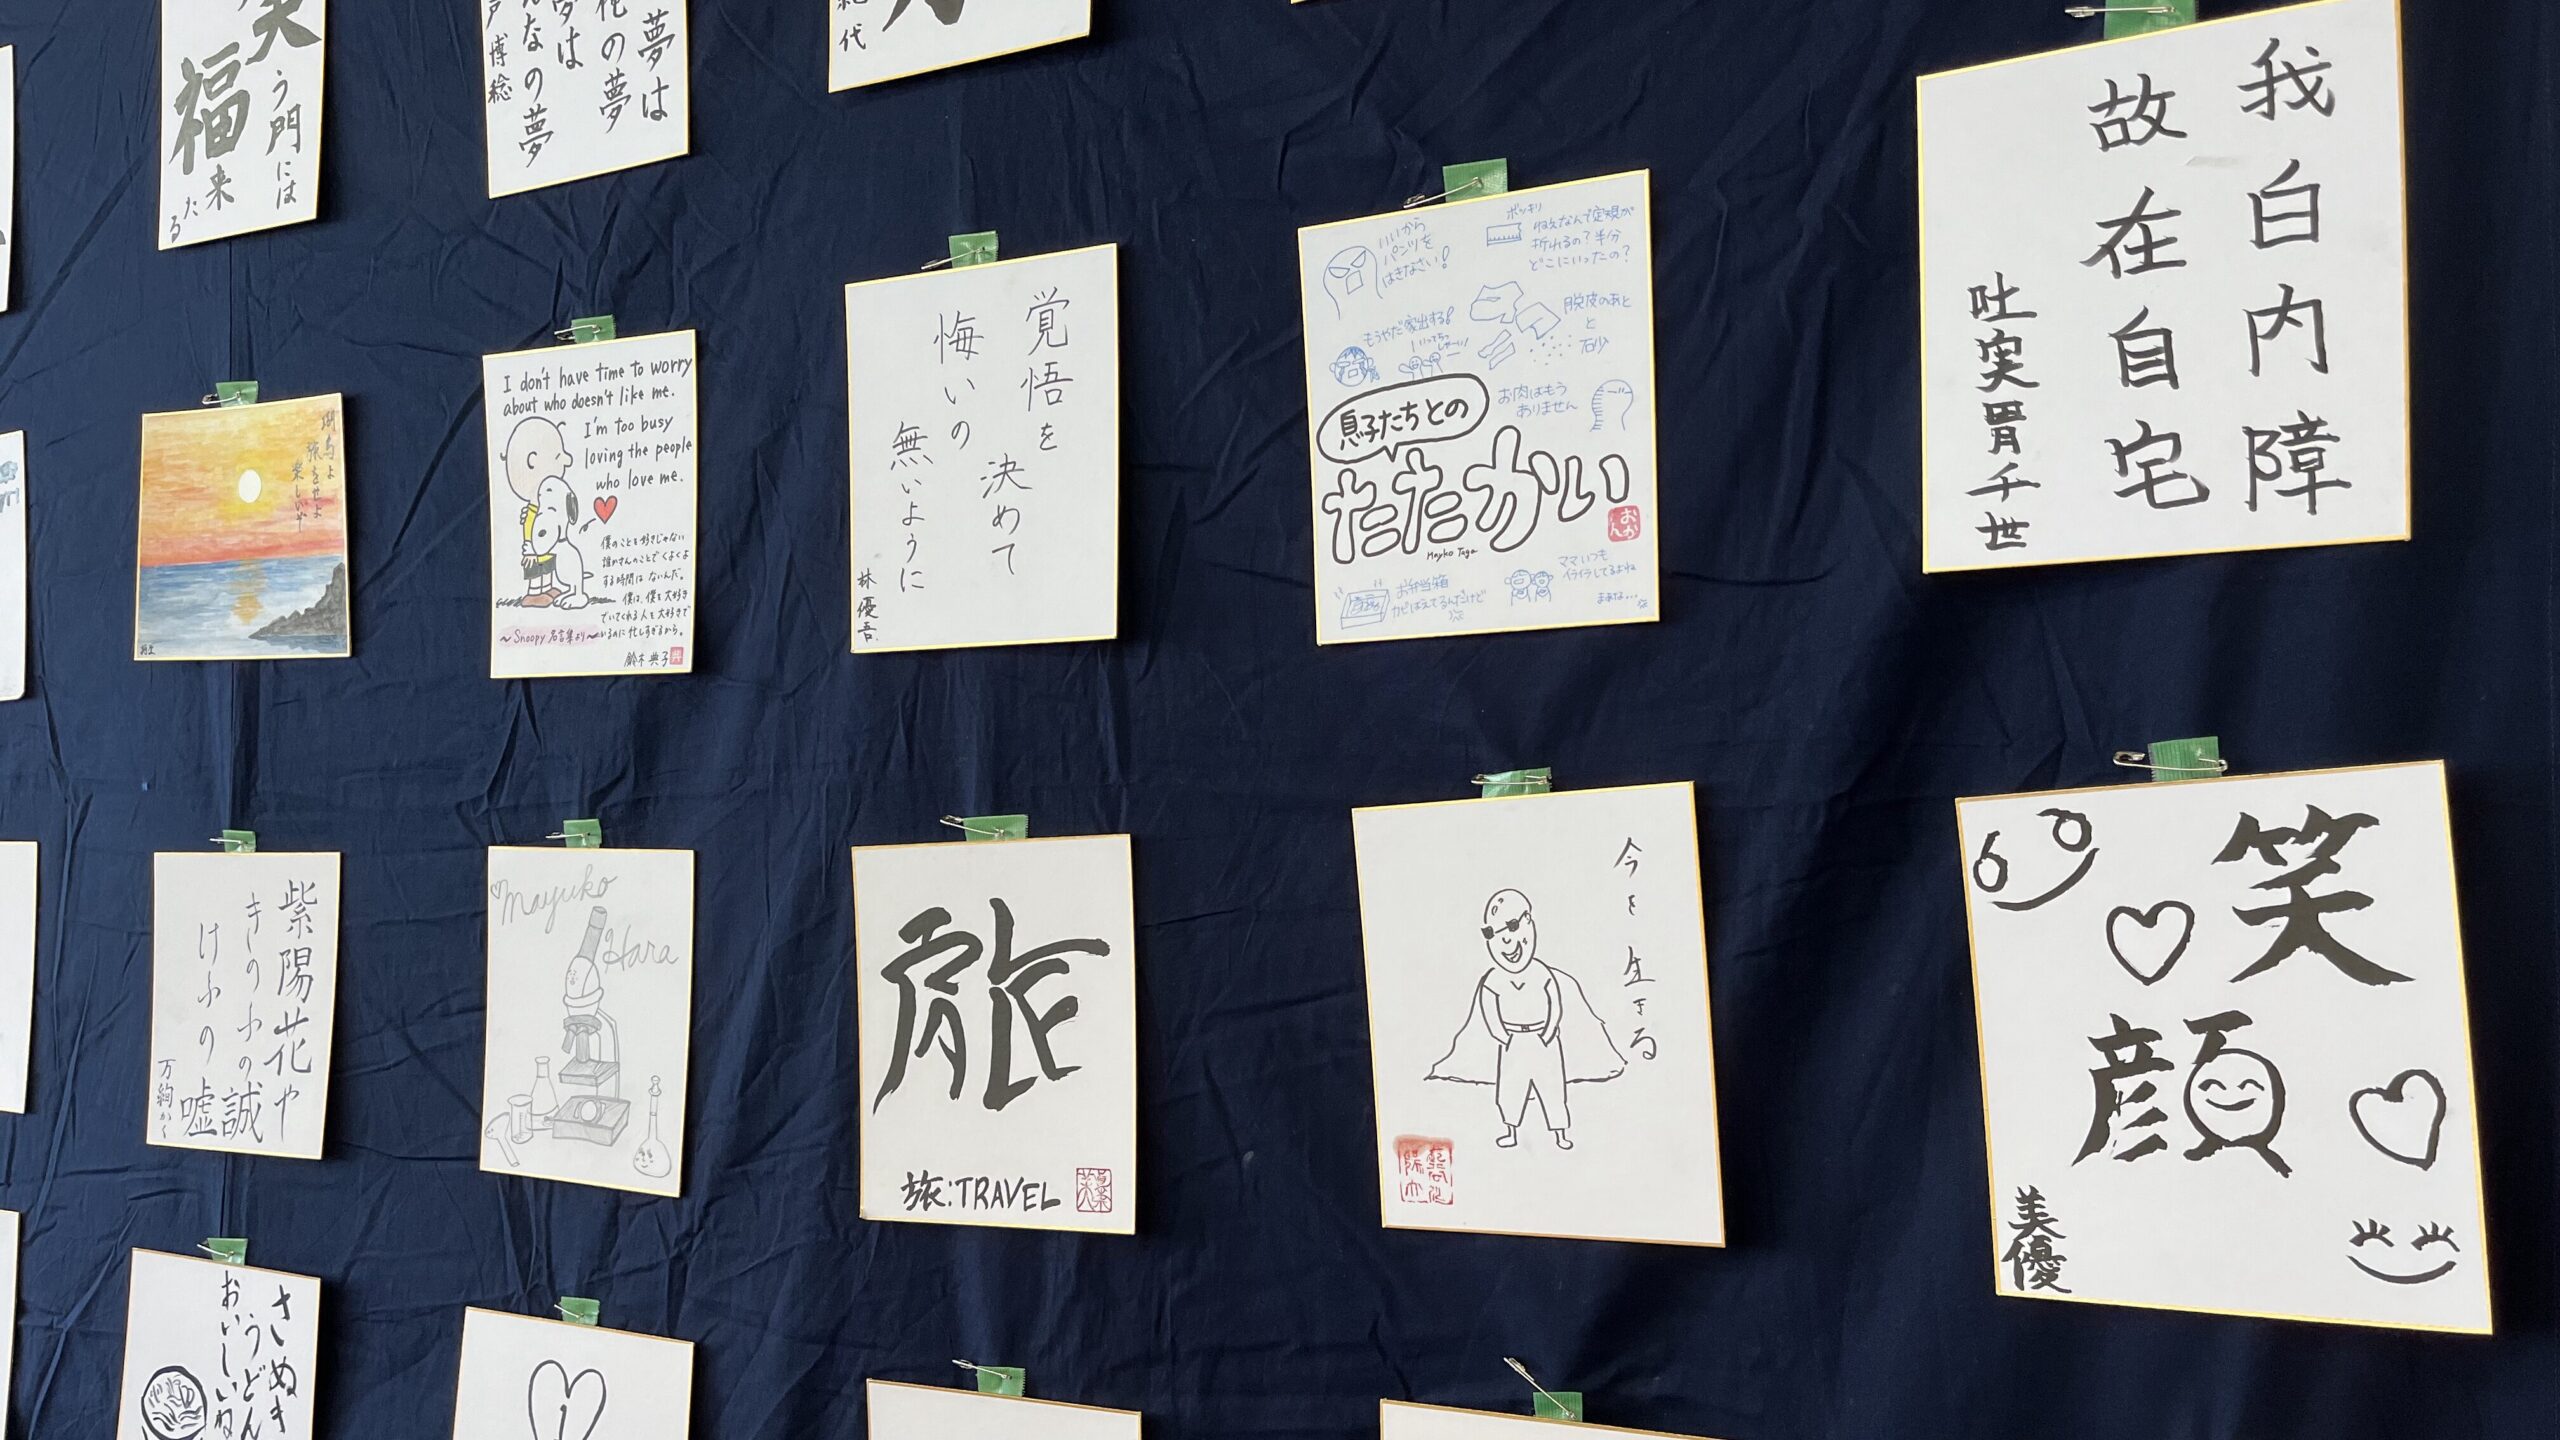 笑う門には
福来たる
夢は
花の夢
夢は
みんなの夢
博稔
代
我白内障
故在自宅
吐実胃千世
旅をせよ
楽しいぞ
I don't have time to worry
about who doesn't like me.
I'm too busy
loving the people
who love me.
僕のことを好きじゃない
誰かさんのことでくよくよ
する時間はないんだ。
僕は、僕を大好き
でいてくれる人を大好きで
いるのに忙しすぎるから。
～Snoopy名言集より～
鈴木典子
覚悟を
決めて
悔いの
無いように
林優吾
いいから
パンツを
はきなさい!
ボッキリ
ねえなんで定規が
折れるの?半分
どこにいったの?
もうやだ家出する!
脱皮のあと
と
石少
お肉はもう
ありません
息子たちとの
たたかい
おかん
お弁当箱
カビはえてるんだけど
ママいつも
イライラしてるよね
まぁな…
紫陽花や
きのふの誠
けふの嘘
Mayuko
Hara
旅
旅:TRAVEL
今を生きる
笑
顔
美優
さぬき
うどん
おいしいね